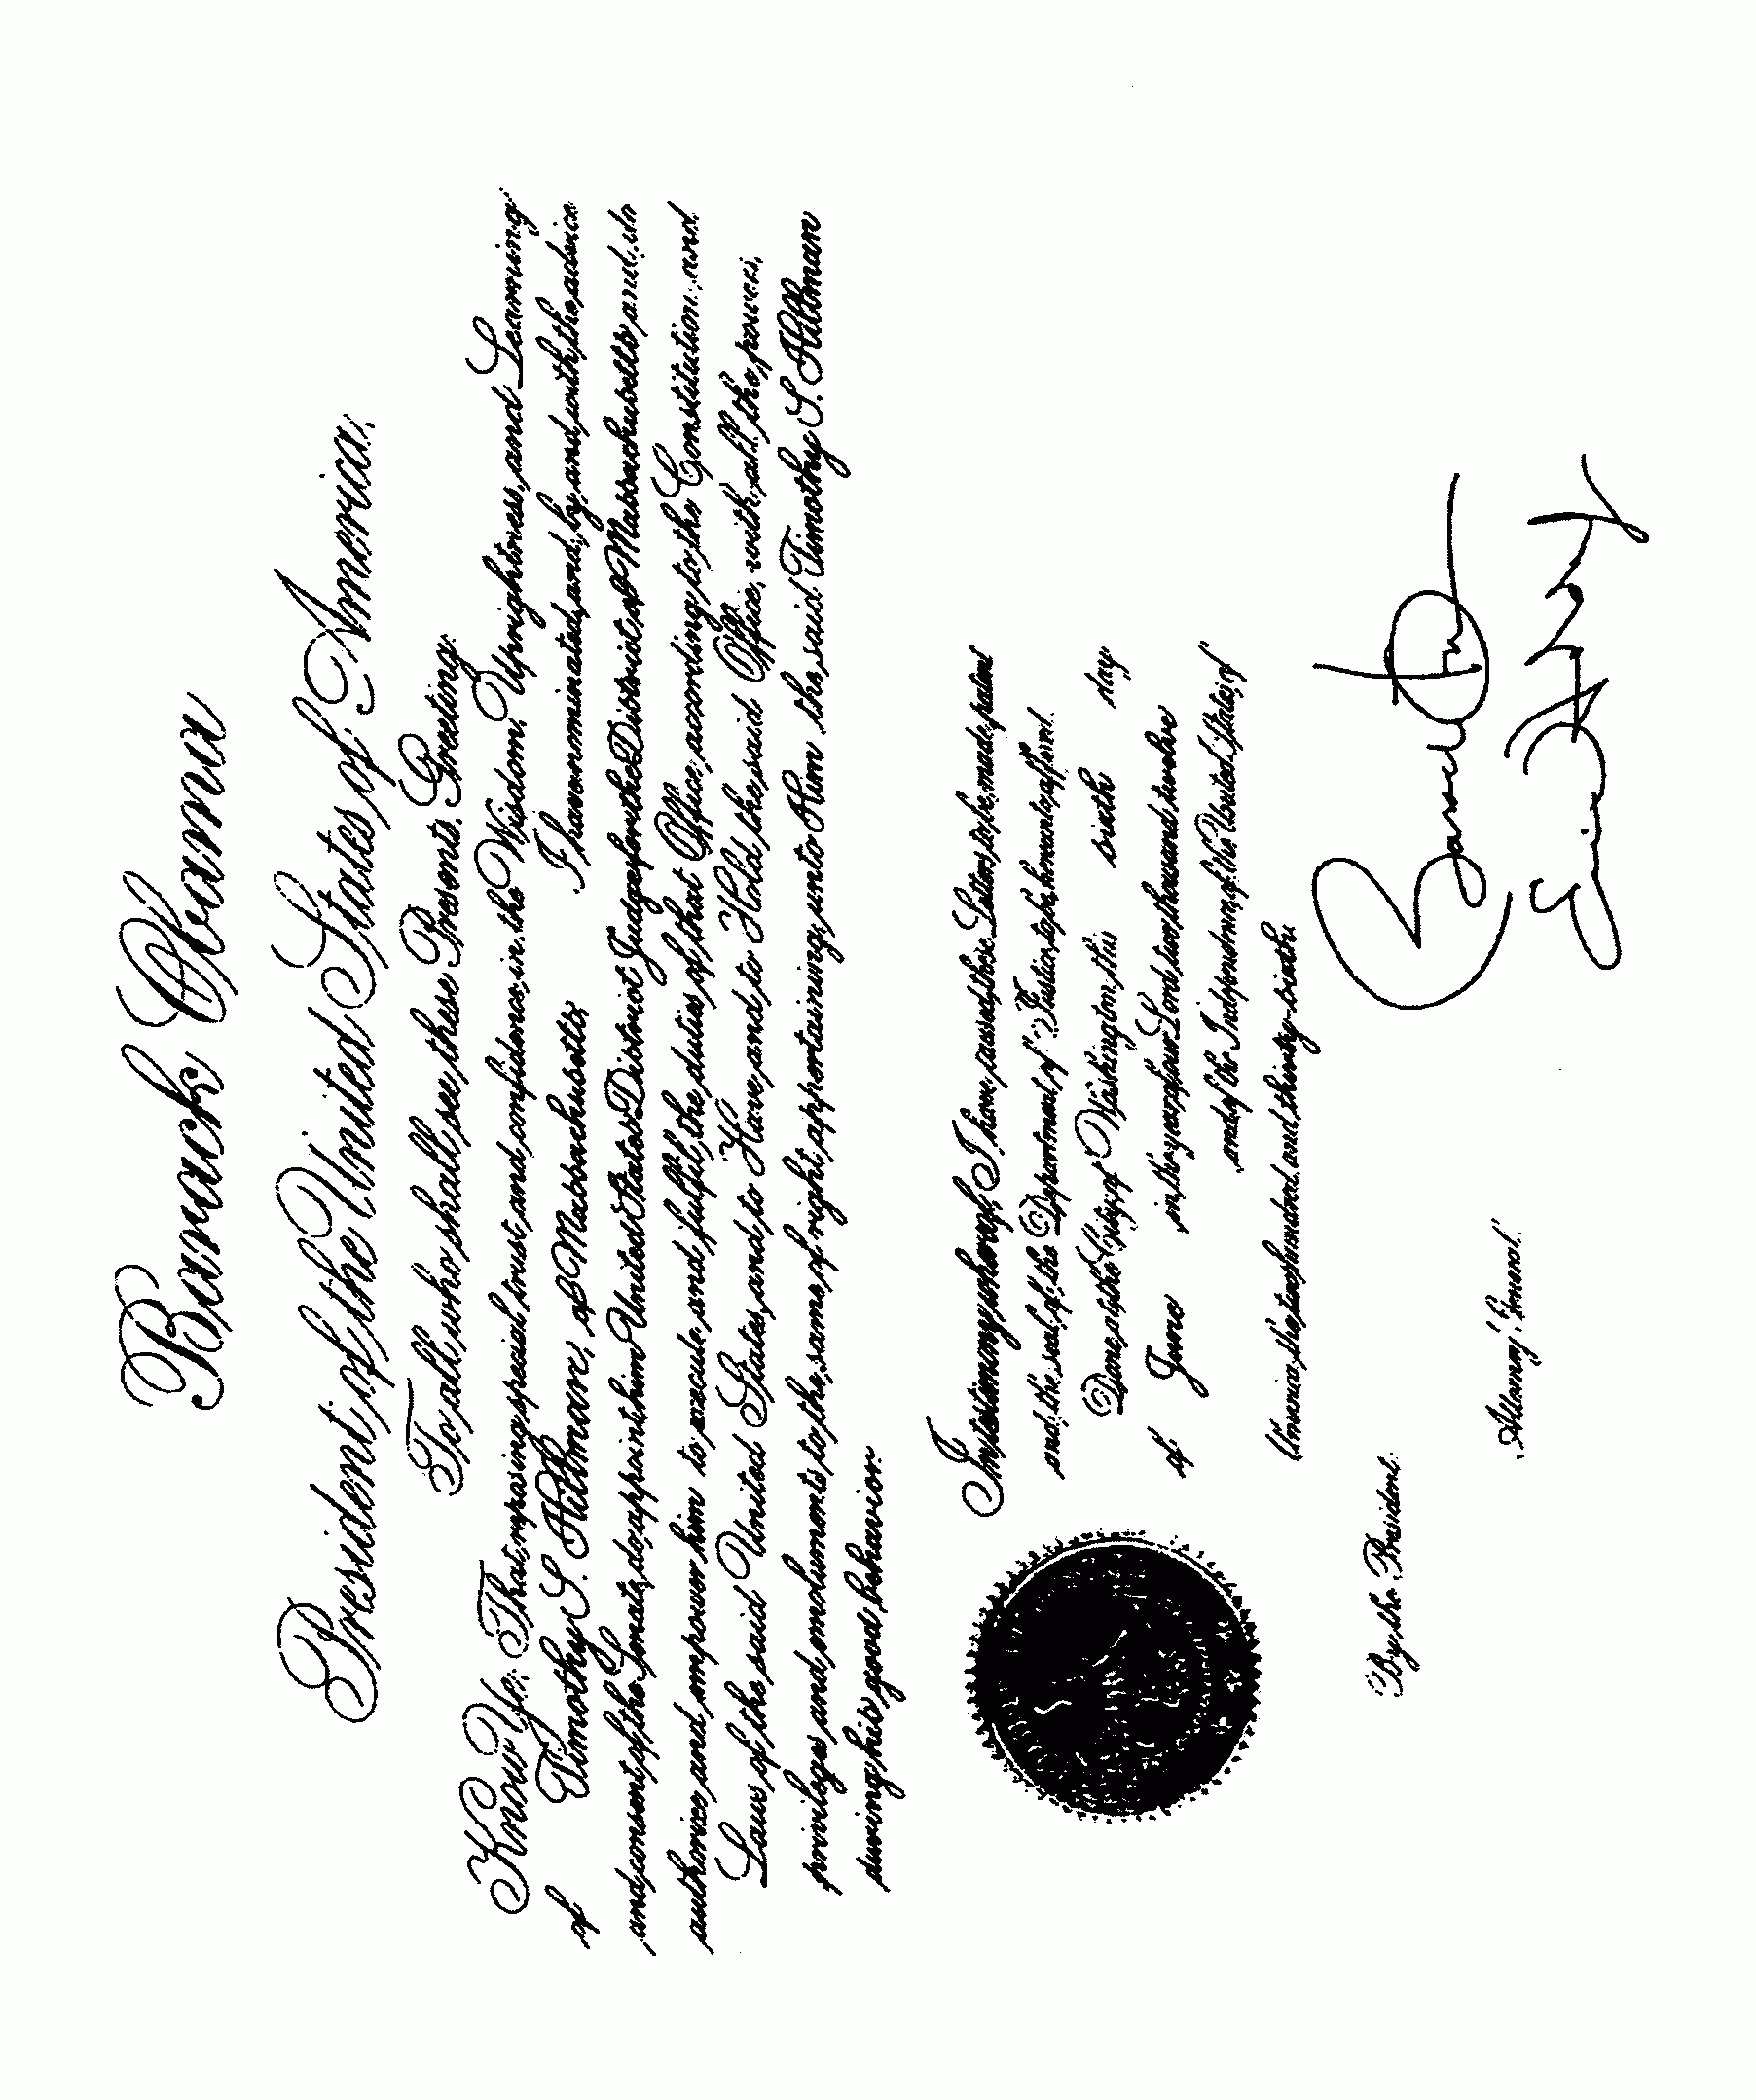 Barack Obama
President of the United States of America.
To all who shall see these Presents, Greeting:
Know Ye; That, reposing special trust and confidence in the Wisdom, Uprightness, and Learning
of Timothy S. Hillman, of Massachusetts, I have nominated, and, by and with the advice
and consent of the Senate, do appoint him United States District Judge for the District of Massachusetts and do
authorize and empower him to execute and fulfil the duties of that Office according to the Constitution and
Laws of the said United States, and to Have and to Hold the said Office, with all the powers,
privileges and emoluments to the same of right appertaining, unto Him the said Timothy S. Hillman
during his good behavior.
In testimony whereof, I have caused these Letters to be made patent
and the seal of the Department of Justice to be hereunto affixed.
Done at the City of Washington, this sixth day
of June in the year of our Lord two thousand twelve
and of the Independence of the United States of
America the two hundred and thirty-sixth.
By the President:
Attorney General.